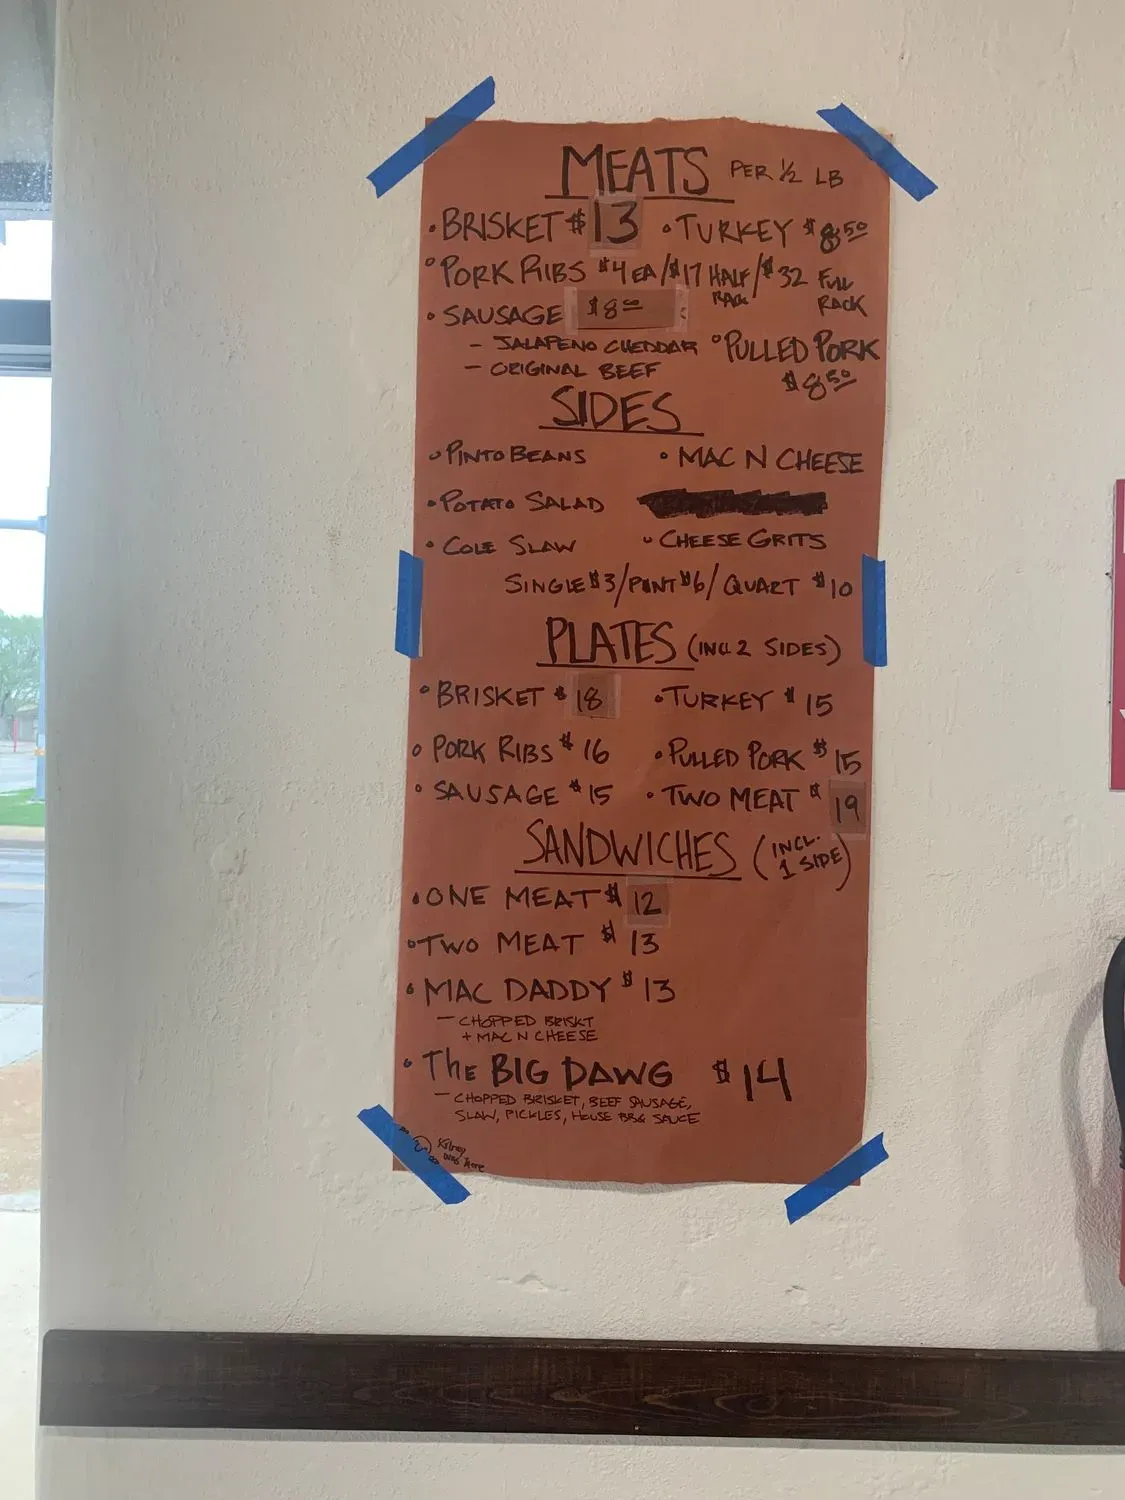 MEATS PER ½ LB
• BRISKET $13 • TURKEY $8.50
• PORK RIBS $4 EA/$17 HALF RACK/$32 FULL RACK
• SAUSAGE $8.00
- JALAPENO CHEDDAR
- ORIGINAL BEEF
• PULLED PORK
$8.50
SIDES
• PINTO BEANS • MAC N CHEESE
• POTATO SALAD
• COLE SLAW • CHEESE GRITS
SINGLE $3/PINT $6/QUART $10
PLATES (INCL 2 SIDES)
• BRISKET $18 • TURKEY $15
• PORK RIBS $16 • PULLED PORK $15
• SAUSAGE $15 • TWO MEAT $19
SANDWICHES (INCL. 1 SIDE)
• ONE MEAT $12
• TWO MEAT $13
• MAC DADDY $13
- CHOPPED BRISKT
+ MAC N CHEESE
• THE BIG DAWG $14
- CHOPPED BRISKET, BEEF SAUSAGE,
SLAW, PICKLES, HOUSE BBQ SAUCE
was here